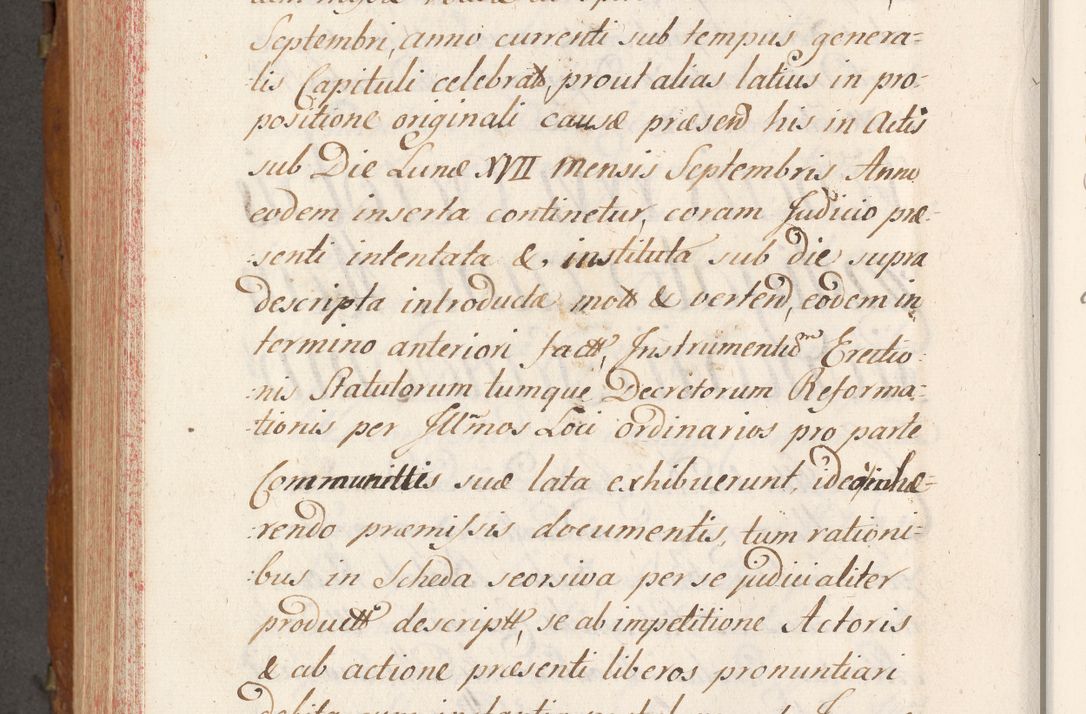 Septembri, anno currenti sub tempus genera=
tis Capituli celebratt, prout alias latius in pro=
positione originali causæ præsend his in Actis
sub Die Lunæ XVII Mensis Septembris Anno
eodem inserta continetur, coram Judicio præ=
senti intentata &, instituta sub die supra
descripta introducta mott & vertend, eodem in
termino anteriori factt, Instrumentod Erectio=
nis Statutorum tumque Decretorum Reforma=
tionis per Illmos Loci ordinarios pro parte
Communittis suæ lata exhibuerunt, ideo inhæ=
rendo præmissis documentis, tum rationi=
bus in Scheda seorsiva per se judicialiter
productt descriptt, se ab impetitione Actoris
& ab actione præsenti liberos pronuntiari